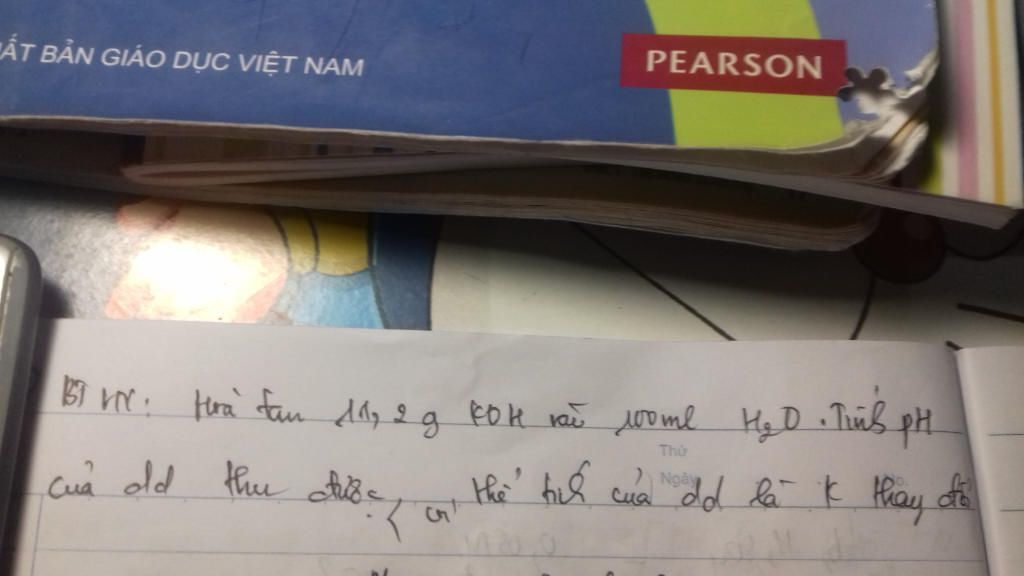 ẤT BẢN GIÁO DỤC VIỆT NAM
PEARSON
BTVN: Hoà tan 11,2 g KOH vào 100ml H2O. Tính pH
Thứ
Ngày
No.
của dd thu được, ( coi thể tích của dd là k thay đổi